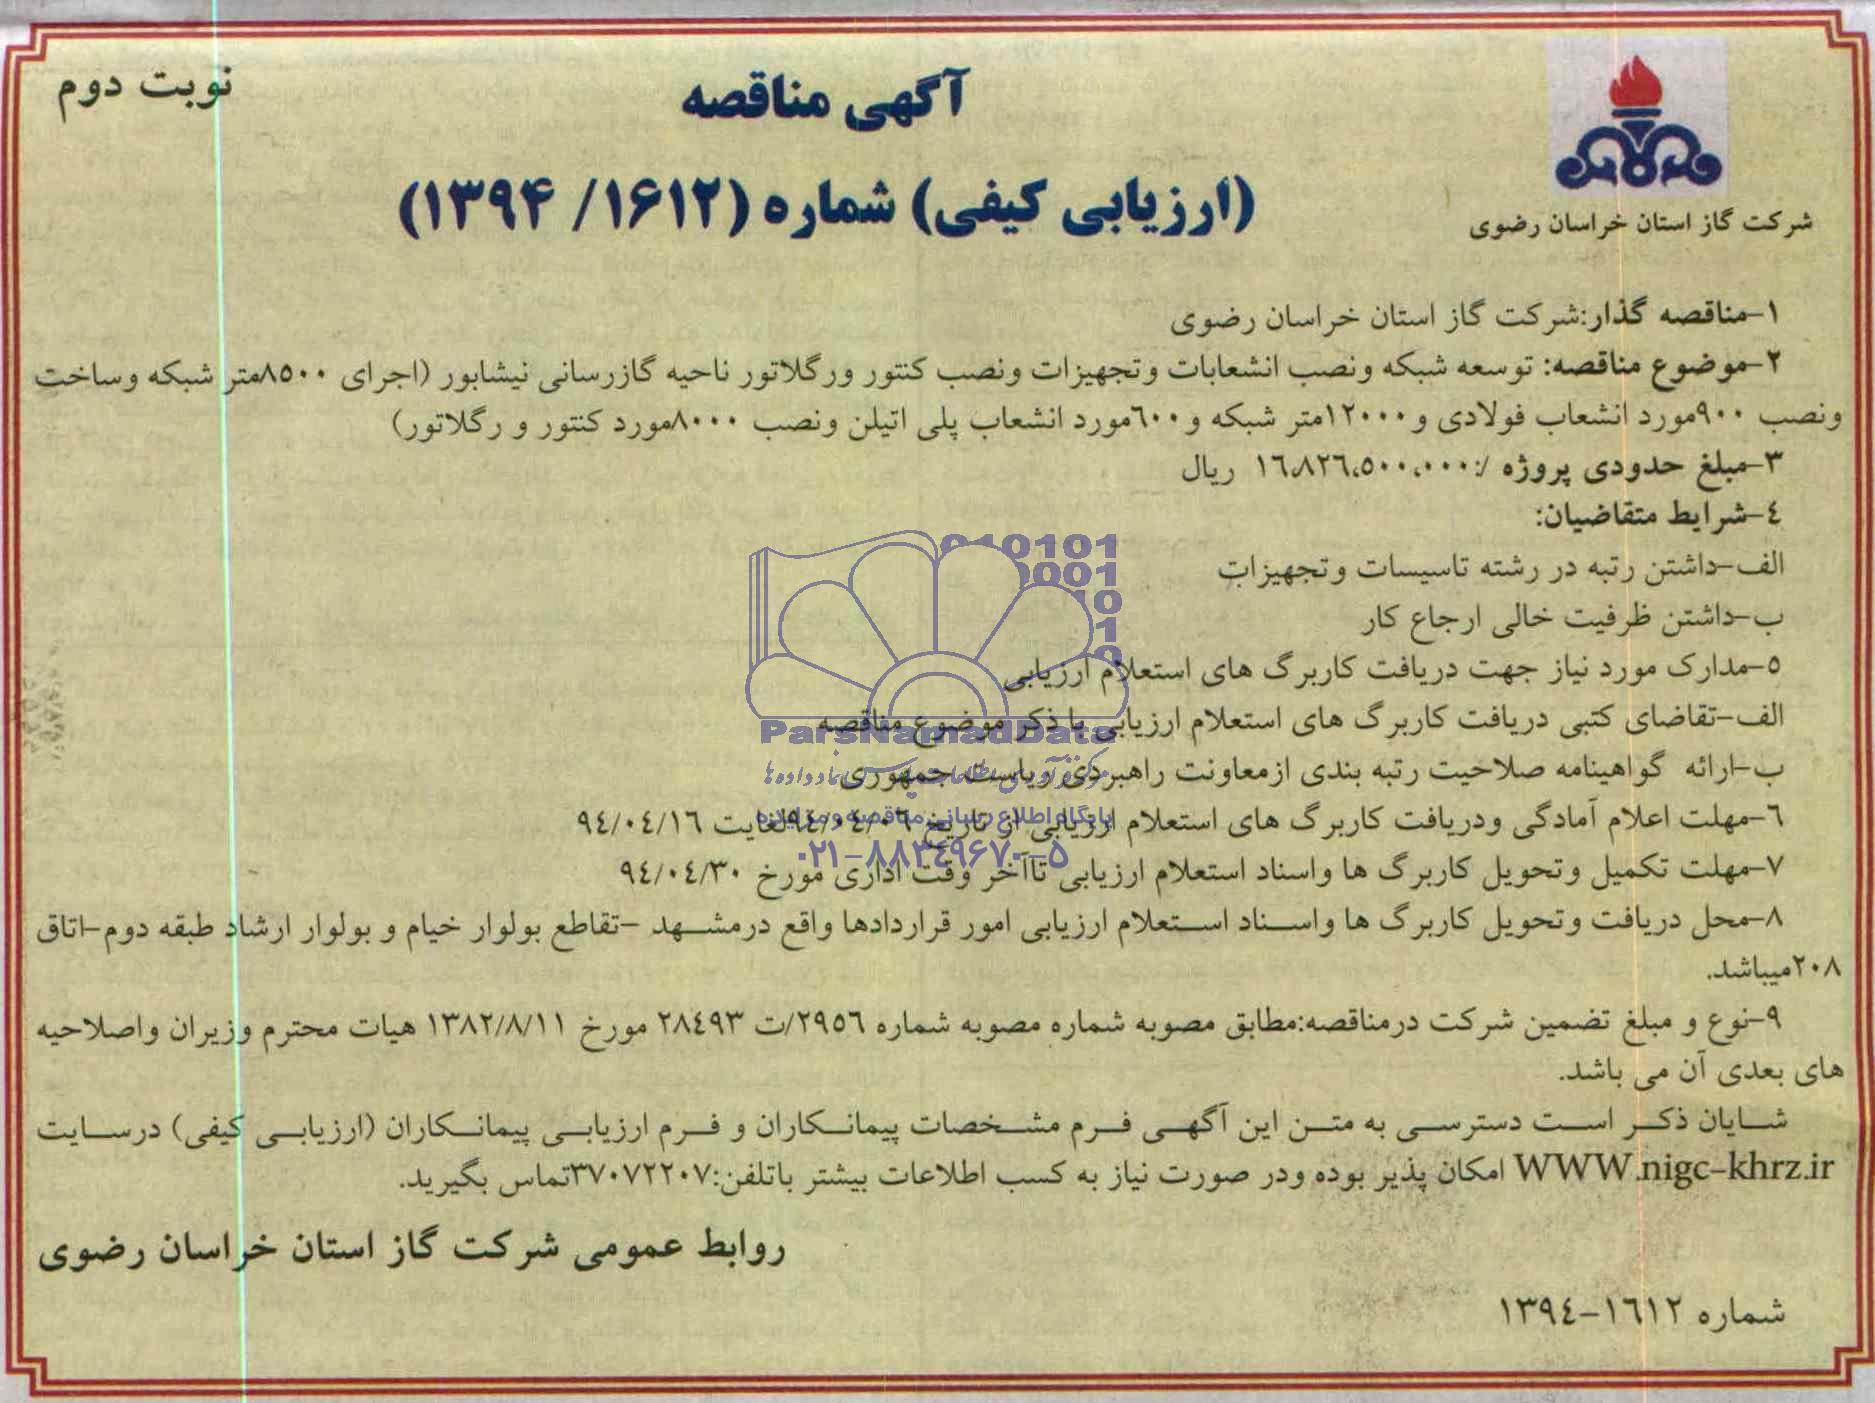 نوبت دوم
آگهی مناقصه
(ارزیابی کیفی) شماره (۱۶۱۲/ ۱۳۹۴)
شرکت گاز استان خراسان رضوی
۱-مناقصه گذار:شرکت گاز استان خراسان رضوی
۲-موضوع مناقصه: توسعه شبکه ونصب انشعابات وتجهیزات ونصب کنتور ورگلاتور ناحیه گازرسانی نیشابور (اجرای ۸۵۰۰متر شبکه وساخت
ونصب ۹۰۰مورد انشعاب فولادی و۱۲۰۰۰متر شبکه و۶۰۰مورد انشعاب پلی اتیلن ونصب ۸۰۰۰مورد کنتور و رگلاتور)
۳-مبلغ حدودی پروژه /:۱۶،۸۲۶،۵۰۰،۰۰۰ ریال
٤-شرایط متقاضیان:
الف-داشتن رتبه در رشته تاسیسات وتجهیزات
ب-داشتن ظرفیت خالی ارجاع کار
٥-مدارک مورد نیاز جهت دریافت کاربرگ های استعلام ارزیابی
الف-تقاضای کتبی دریافت کاربرگ های استعلام ارزیابی با ذکر موضوع مناقصه
ب-ارائه گواهینامه صلاحیت رتبه بندی ازمعاونت راهبردی ریاست جمهوری
٦-مهلت اعلام آمادگی ودریافت کاربرگ های استعلام ارزیابی از تاریخ ۹٤/۰٤/۰٦لغایت ۹٤/۰٤/۱٦
۷-مهلت تکمیل وتحویل کاربرگ ها واسناد استعلام ارزیابی تاآخر وقت اداری مورخ ۹٤/۰٤/۳۰
۸-محل دریافت وتحویل کاربرگ ها واسناد استعلام ارزیابی امور قراردادها واقع درمشهد -تقاطع بولوار خیام و بولوار ارشاد طبقه دوم-اتاق
۲۰۸میباشد.
۹-نوع و مبلغ تضمین شرکت درمناقصه:مطابق مصوبه شماره مصوبه شماره ۲۹٥٦/ت ۲۸٤۹۳ مورخ ۱۳۸۲/۸/۱۱ هیات محترم وزیران واصلاحیه
های بعدی آن می باشد.
شایان ذکر است دسترسی به متن این آگهی فرم مشخصات پیمانکاران و فرم ارزیابی پیمانکاران (ارزیابی کیفی) درسایت
WWW.nigc-khrz.ir امکان پذیر بوده ودر صورت نیاز به کسب اطلاعات بیشتر باتلفن:۳۷۰۷۲۲۰۷تماس بگیرید.
روابط عمومی شرکت گاز استان خراسان رضوی
شماره ۱٦۱۲-۱۳۹٤
ParsNamadData
پایگاه اطلاع رسانی مناقصه و مزایده
۰۲۱-۸۸۳۴۹۶۷۰-۵